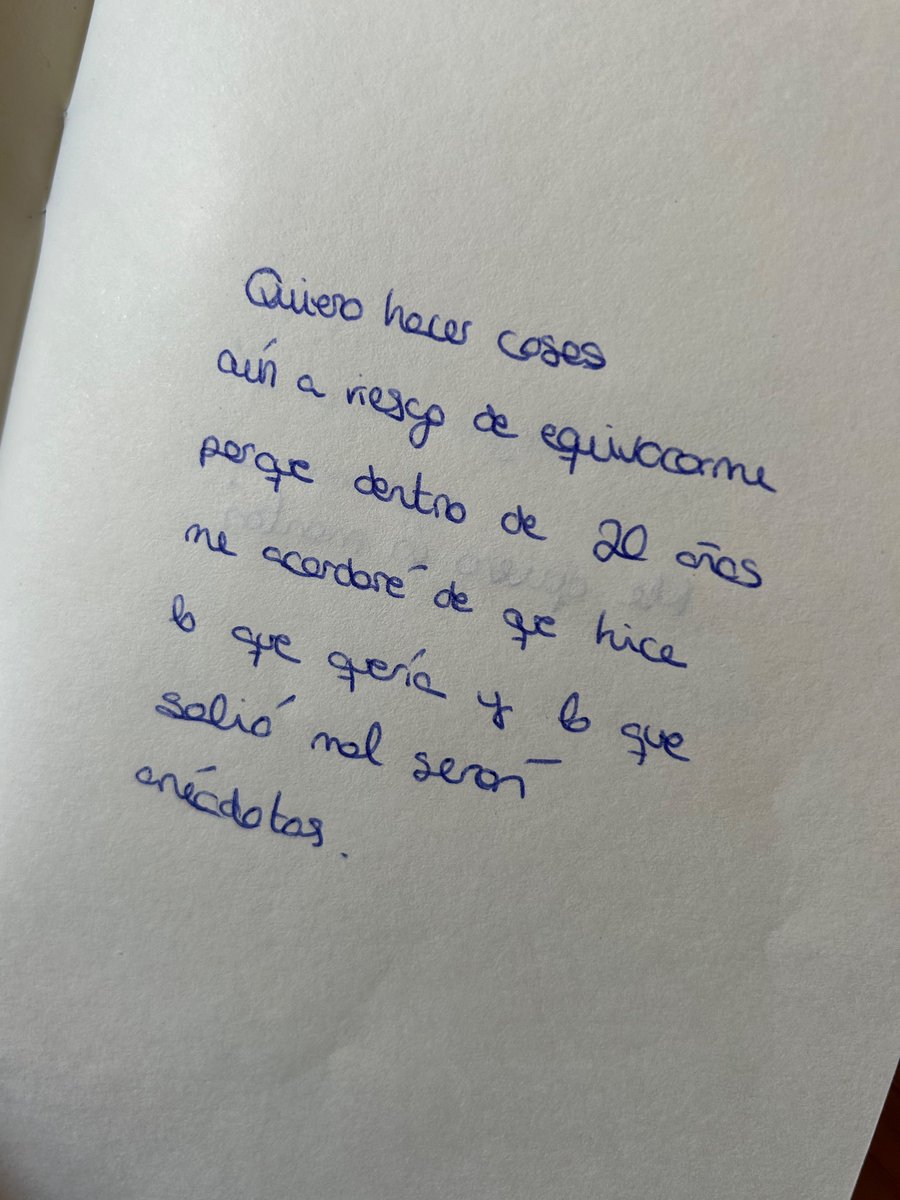 Quiero hacer cosas
aún a riesgo de equivocarme
porque dentro de 20 años
me acordaré de que hice
lo que quería y lo que
salió mal serán
anécdotas.